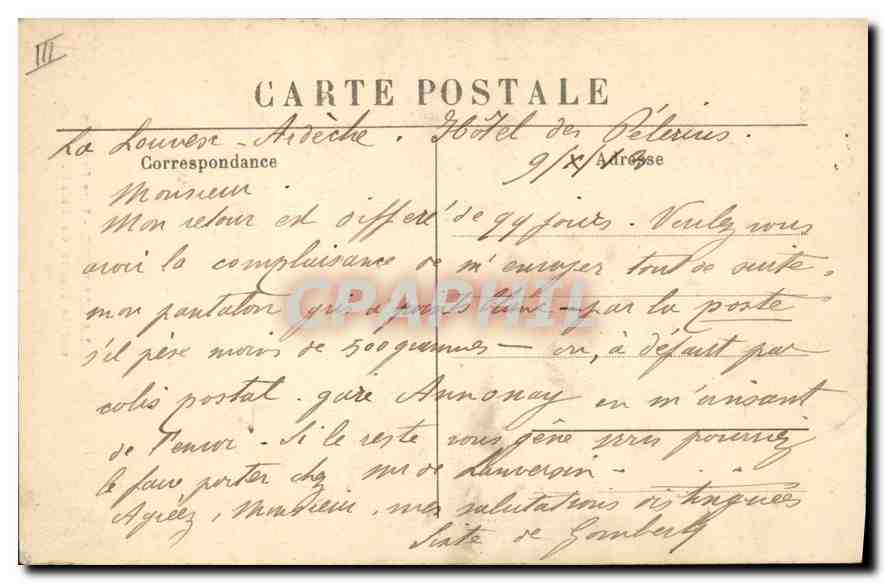 III
CARTE POSTALE
La Louvesc - Ardèche. Hôtel des Pélerins.
Correspondance
Adresse
9/X/13
Monsieur.
Mon retour est différé de jours. Voulez vous
avoir la complaisance de m'envoyer tout de suite,
mon pantalon gris à points blancs - par la poste
s'il pèse moins de 500 grammes - ou, à défaut par
colis postal. gare Annonay en m'avisant
de l'envoi. Si le reste vous gêne vous pourriez
le faire porter chez Mr de Lanversin -
Agréez, Monsieur, mes salutations distinguées
de Gombert
CPAPHIL